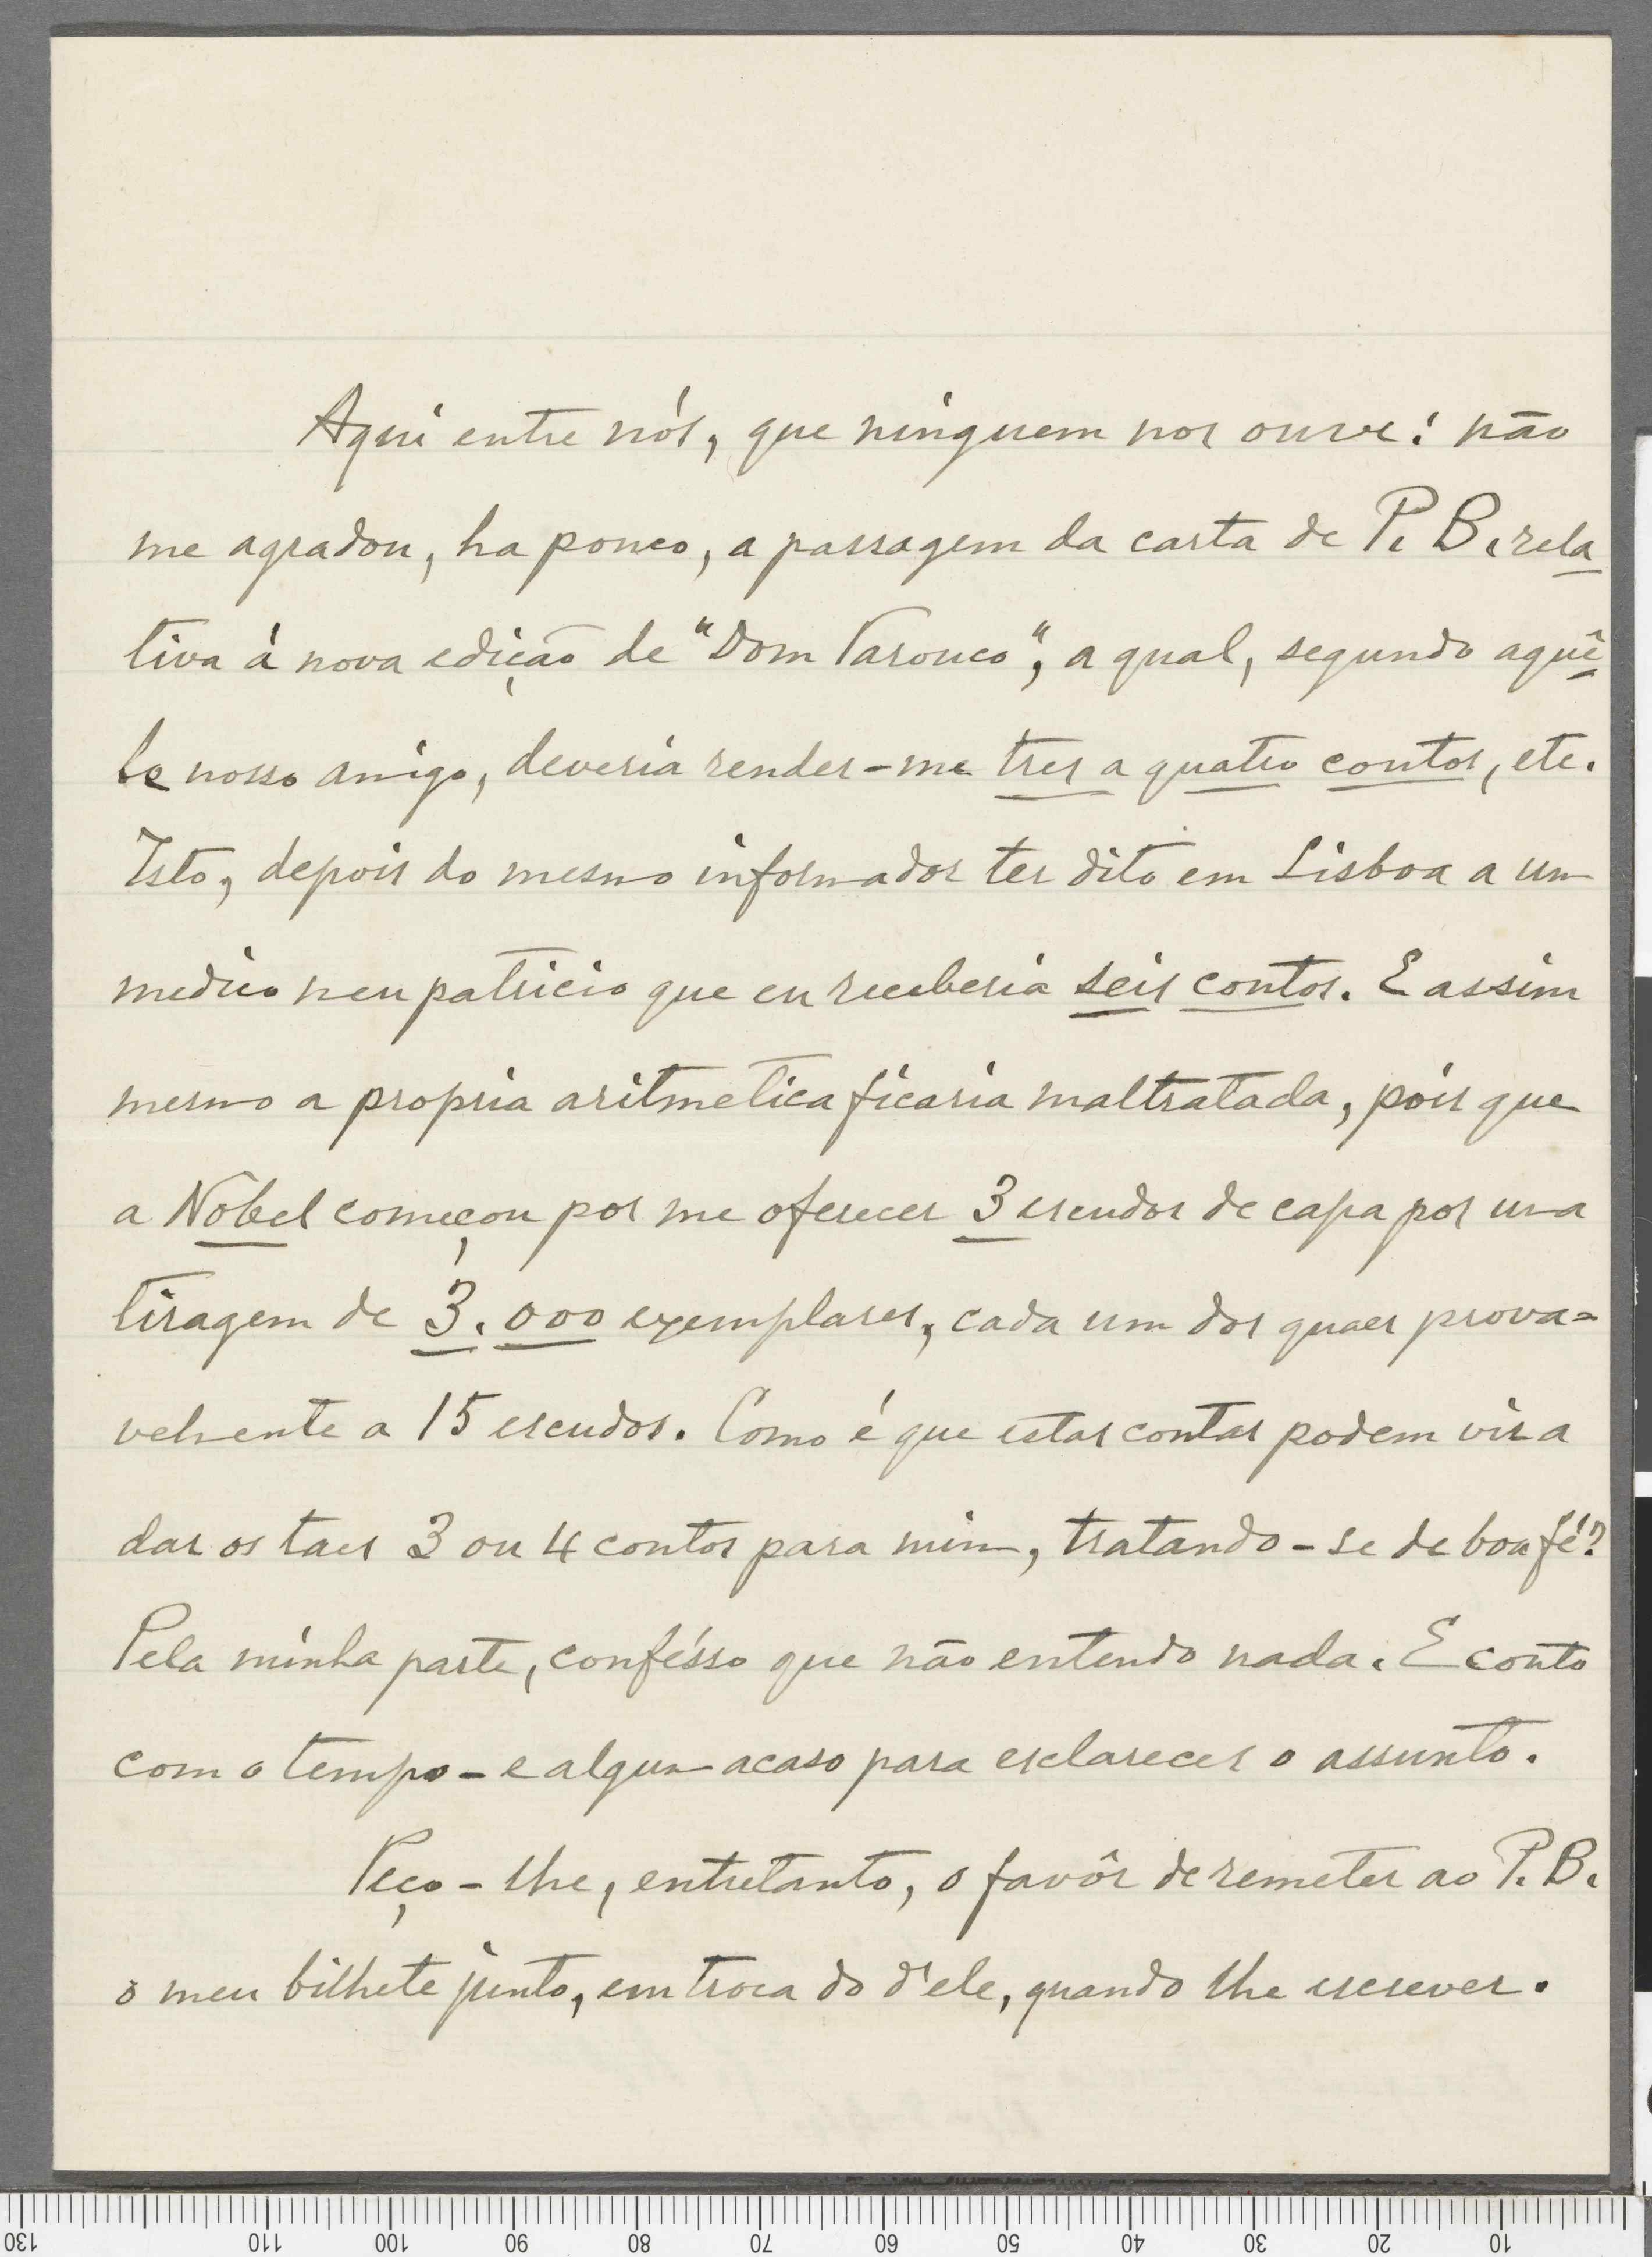 Aqui entre nós, que ninguem nos ouve: não
me agradou, ha pouco, a passagem da carta de P. B. rela
tiva á nova edição de "Dom Tarouco", a qual, segundo aquê
le nosso amigo, deveria render-me tres a quatro contos, etc.
Isto, depois do mesmo informador ter dito em Lisboa a um
medico meu patricio que eu receberia seis contos. E assim
mesmo a propria aritmetica ficaria maltratada, pois que
a Nobel começou por me oferecer 3 escudos de capa por uma
tiragem de 3.000 exemplares, cada um dos quaes prova=
velmente a 15 escudos. Como é que estas contas podem vir a
dar os taes 3 ou 4 contos para mim, tratando-se de boa fé?
Pela minha parte, confésso que não entendo nada. E conto
com o tempo - e algum acaso para esclarecer o assunto.
Peço-lhe, entretanto, o favôr de remeter ao P. B.
o meu bilhete junto, em troca do d'ele, quando lhe escrever.
130 110 100 90 80 70 60 50 40 30 20 10